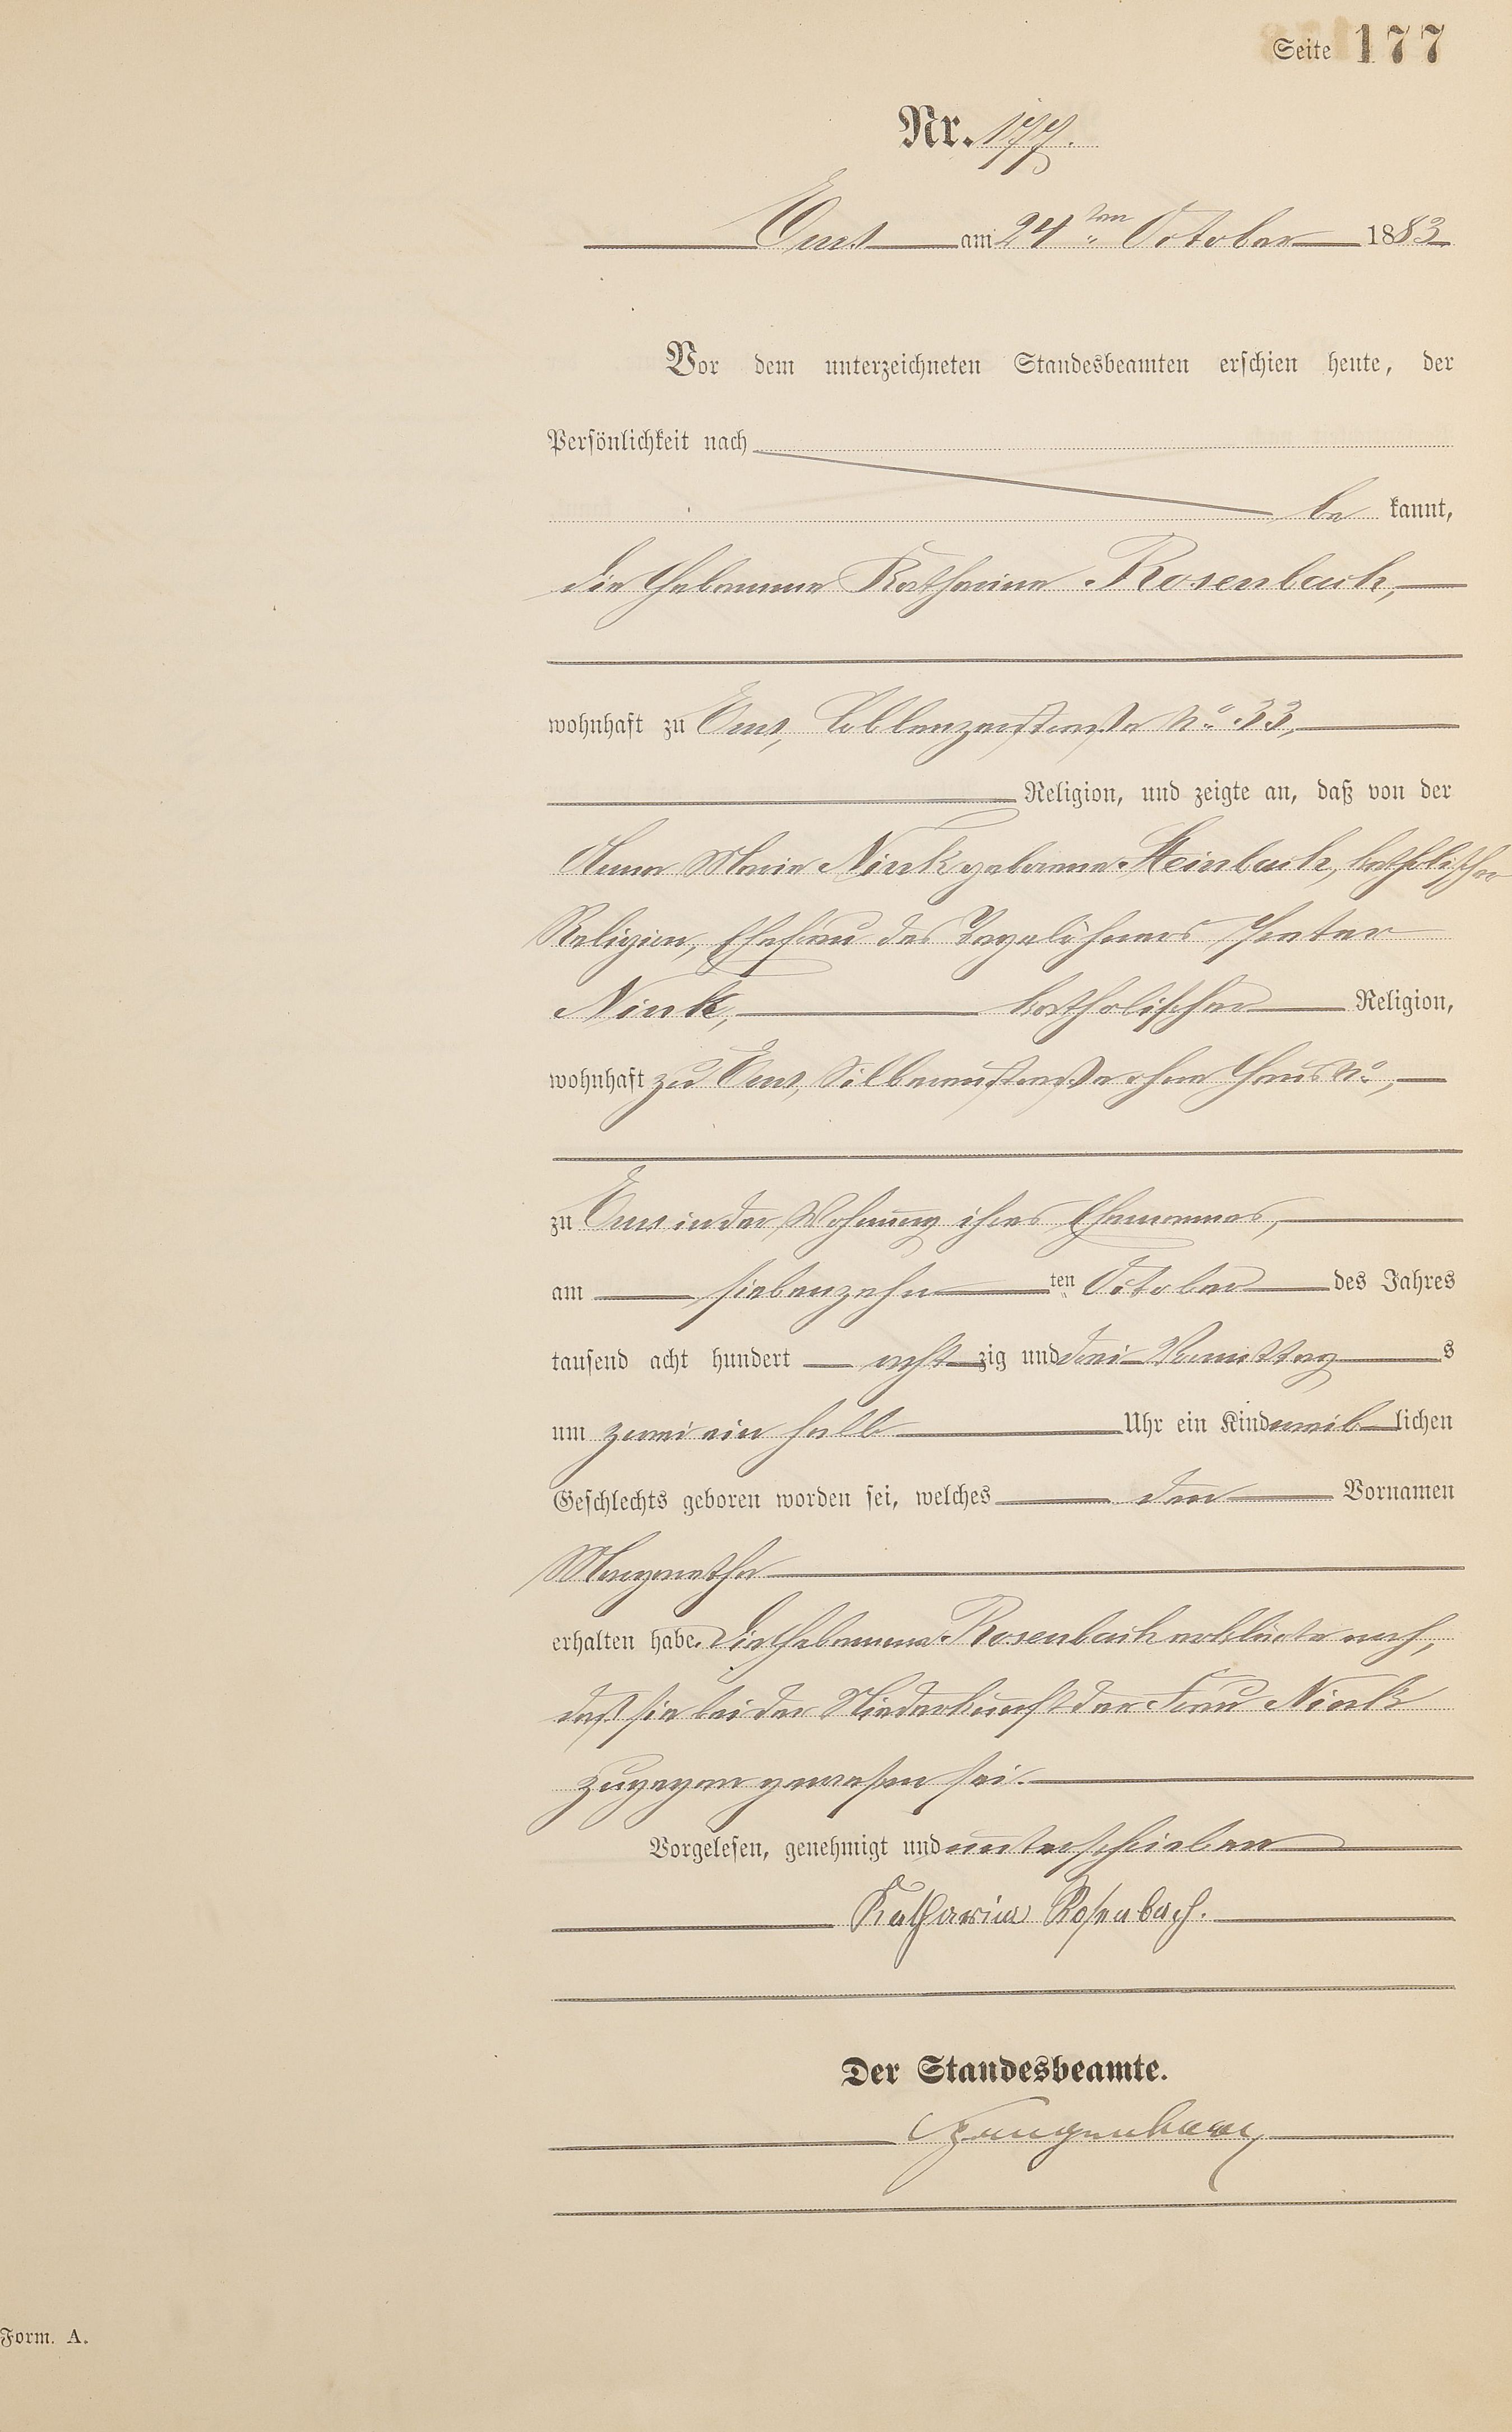 Seite 177
Nr. 177.
Ems am 24ten October 1883
Vor dem unterzeichneten Standesbeamten erschien heute, der
Persönlichkeit nach
be kannt,
die Hebamme Katharina Rosenbach,
wohnhaft zu Ems, Coblenzerstraße No. 33,
Religion, und zeigte an, daß von der
Anna Maria Nink geborene Steinbach, katholischer
Religion, Ehefrau des Tagelöhners Peter
Nink, katholischer Religion,
wohnhaft zu Ems, Silberaustraße ohne Haus No.,
zu Ems in der Wohnung ihres Ehemannes,
am siebenzehn ten October des Jahres
tausend acht hundert acht zig und drei Vormittag s
um zwei ein halb Uhr ein Kind weib lichen
Geschlechts geboren worden sei, welches den Vornamen
Margaretha
erhalten habe. Die Hebamme Rosenbach erklärte noch,
daß sie bei der Niederkunft der Frau Nink
zugegen gewesen sei.
Vorgelesen, genehmigt und unterschrieben
Katharina Rosenbach.
Der Standesbeamte.
Form. A.